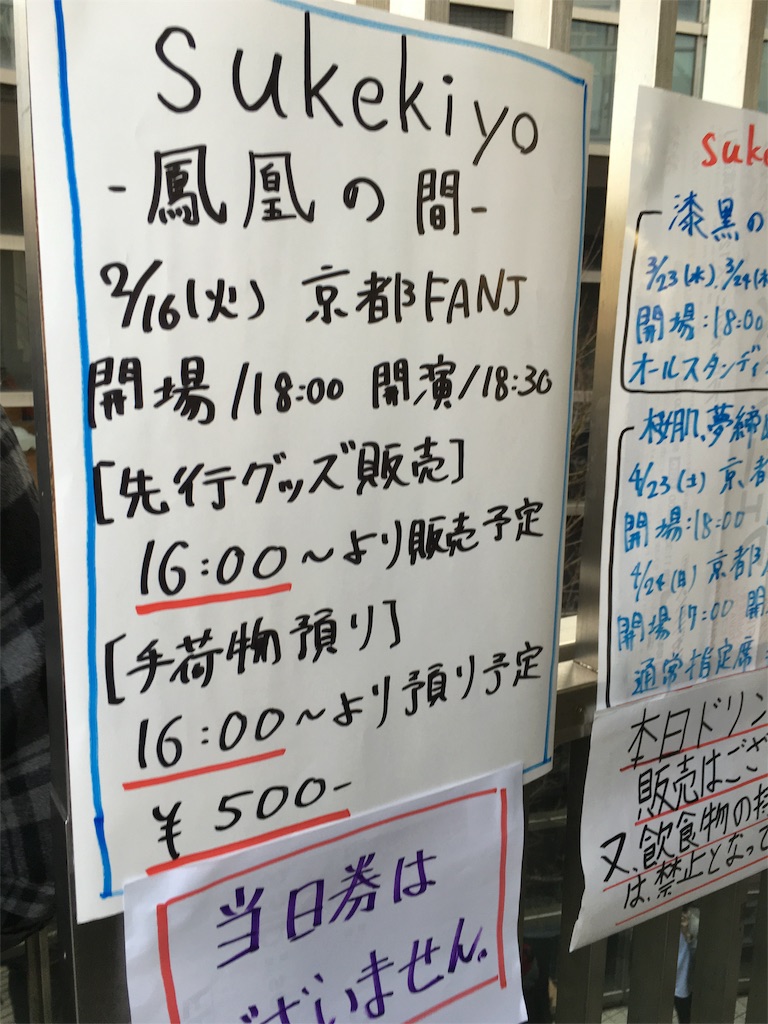 sukekiyo
-鳳凰の間-
2/16(火) 京都FANJ
開場/18:00 開演/18:30
[先行グッズ販売]
16:00～より販売予定
[手荷物預り]
16:00～より預り予定
¥500-
当日券は
ございません.
suke
漆黒の
3/23(水), 3/24(木
開場:18:00
オールスタンディ
桜肌、夢締
4/23(土) 京都
開場:18:00
4/24(日) 京都
開場17:00 開
通常指定席
本日ドリン
販売はござ
又、飲食物の持
は、禁止となって